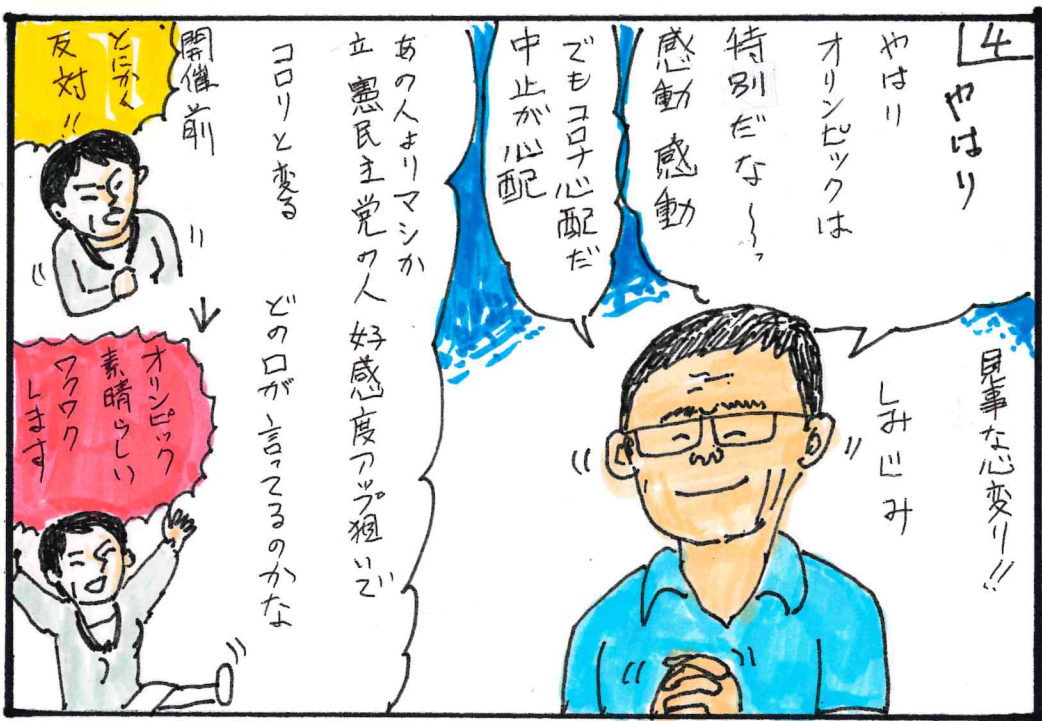 4
やはり
やはり
オリンピックは
特別だな〜、
感動 感動
しみじみ
見事な心変り!!
でもコロナ心配だ
中止が心配
あの人よりマシか
立憲民主党の人 好感度アップ狙いで
コロリと変る どの口が言ってるのかな
開催前
とにかく
反対!!
オリンピック
素晴らしい
ワクワク
します